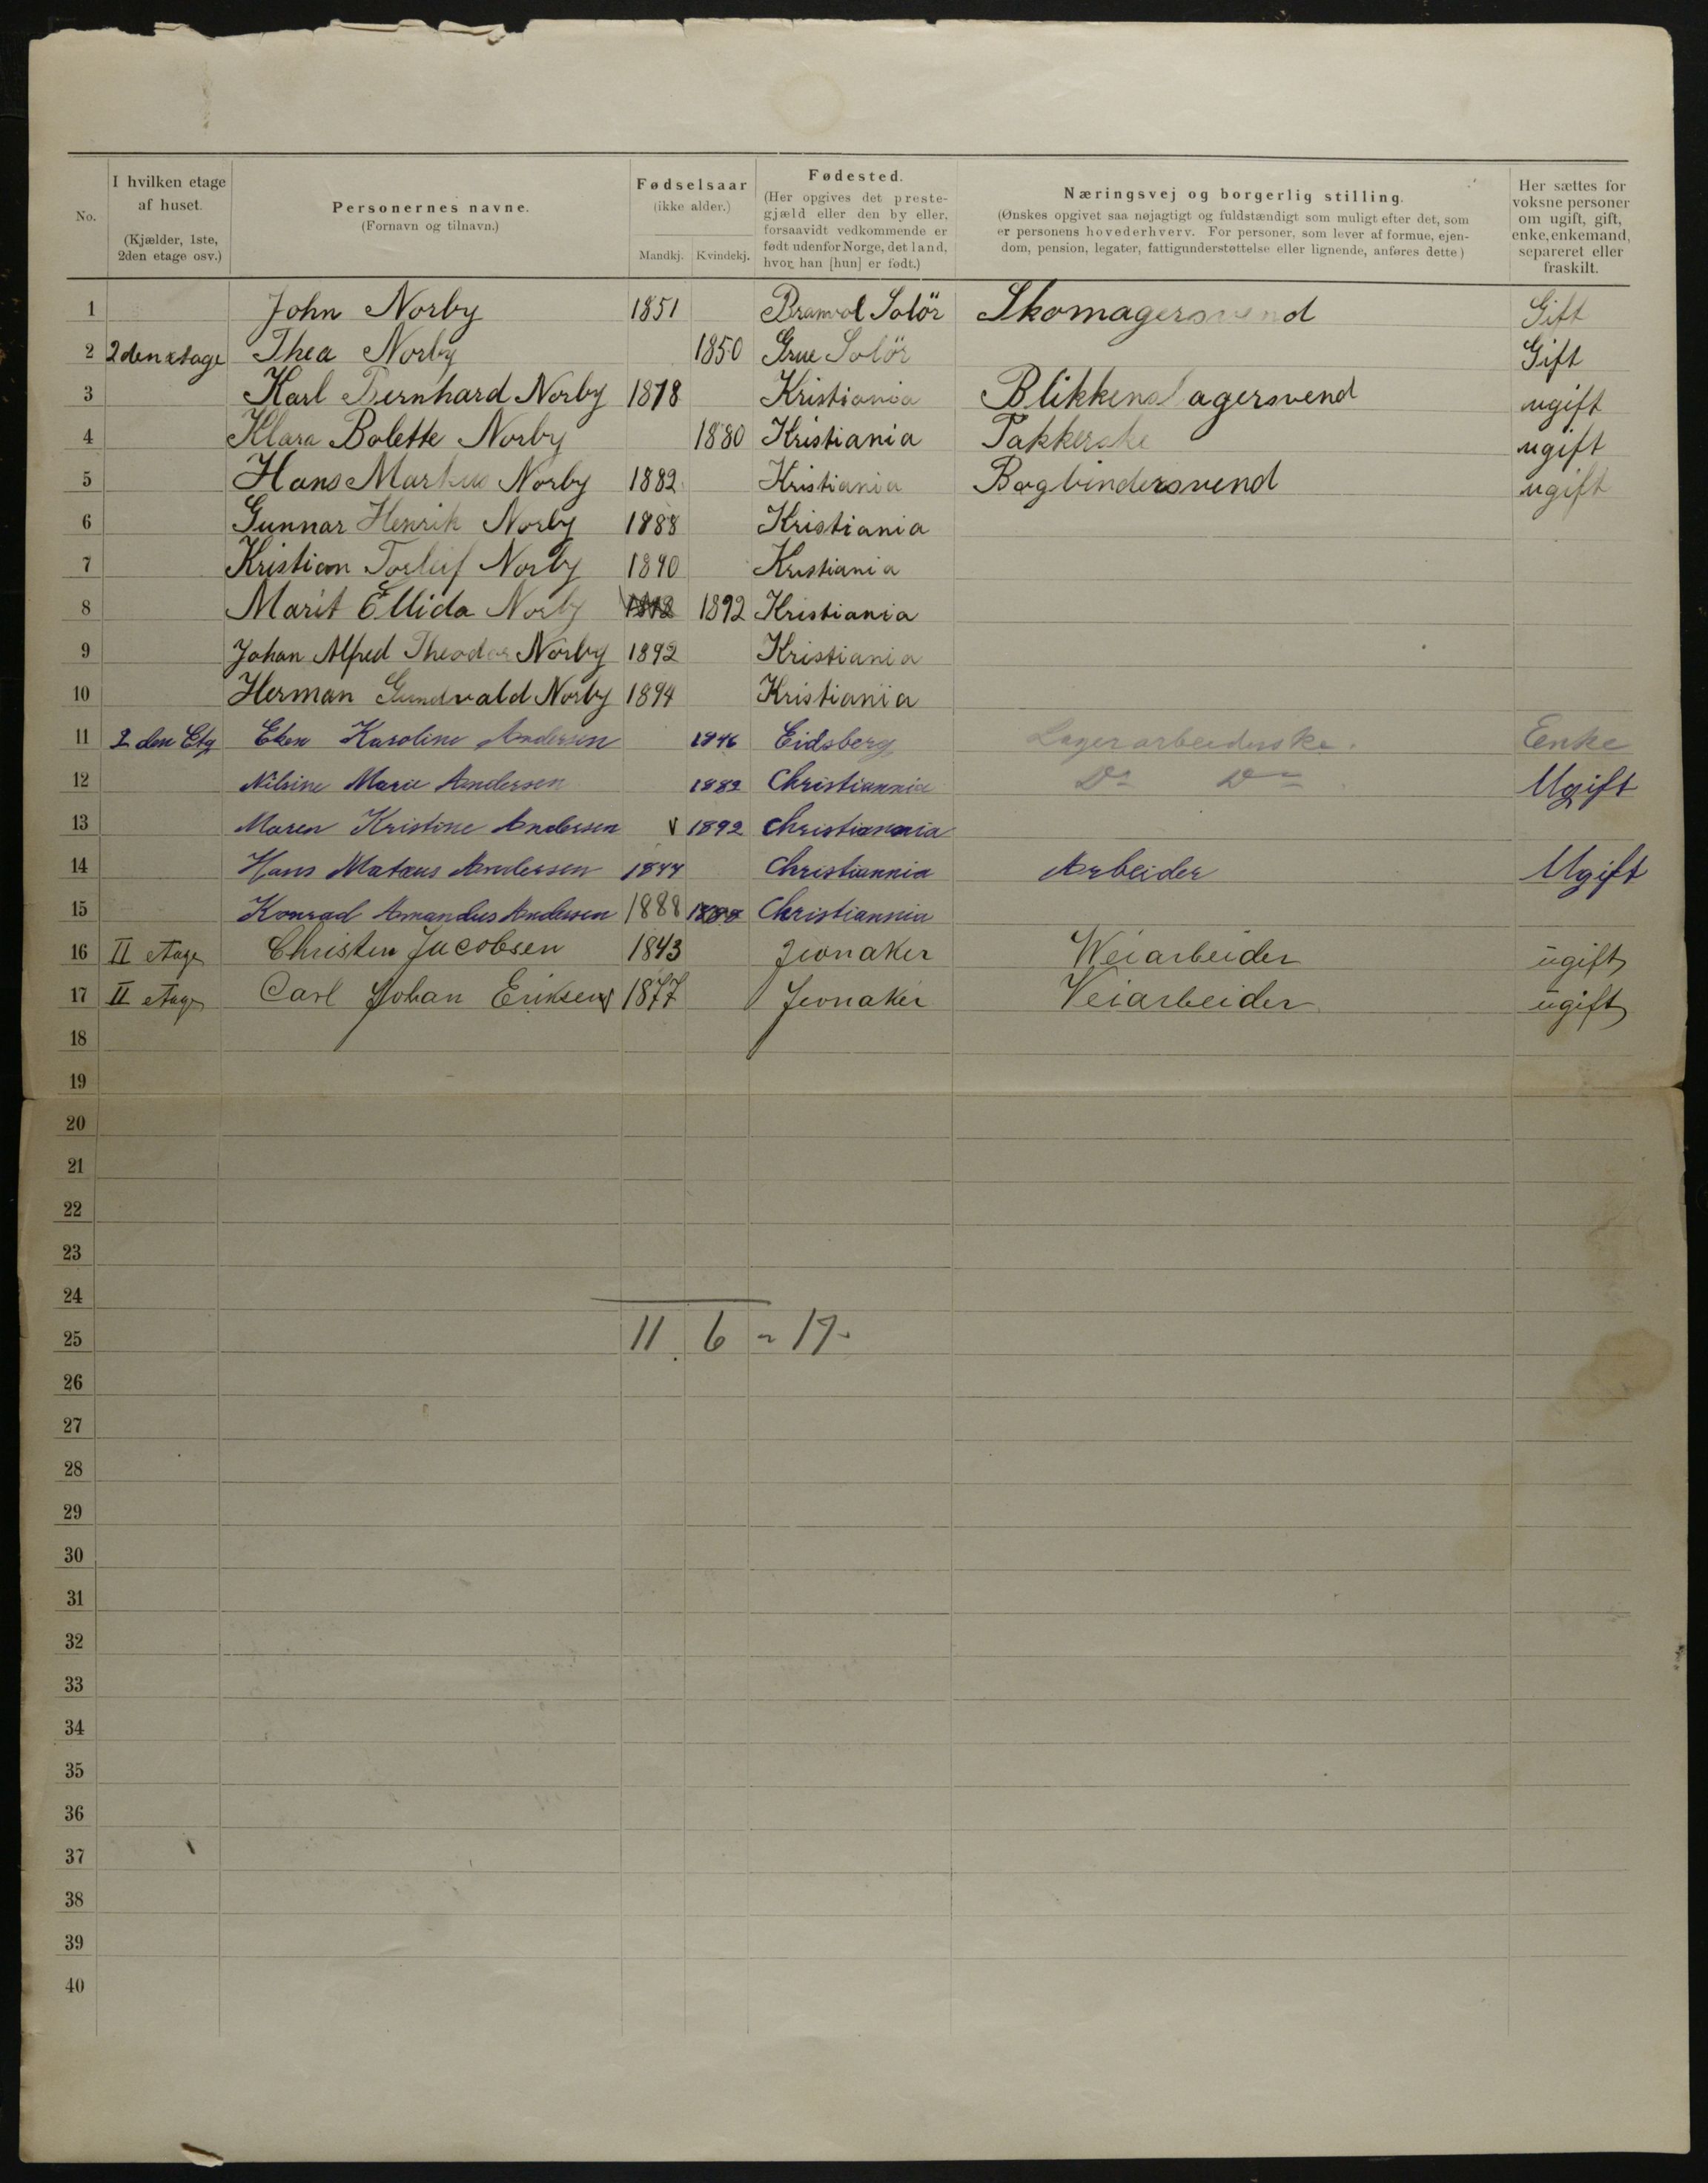 No.
I hvilken etage af huset. (Kjælder, 1ste, 2den etage osv.)
Personernes navne. (Fornavn og tilnavn.)
Fødselsaar (ikke alder.) Mandkj. Kvindekj.
Fødested. (Her opgives det prestegjæld eller den by eller, forsaavidt vedkommende er født udenfor Norge, det land, hvor han [hun] er født.)
Næringsvej og borgerlig stilling. (Ønskes opgivet saa nøjagtigt og fuldstændigt som muligt efter det, som er personens hovederhverv. For personer, som lever af formue, ejendom, pension, legater, fattigunderstøttelse eller lignende, anføres dette)
Her sættes for voksne personer om ugift, gift, enke, enkemand, separeret eller fraskilt.
1 John Norby 1851 Branvol Solör Skomagersvend Gift
2 2den etage Thea Norby 1850 Grue Solör Gift
3 Karl Bernhard Norby 1878 Kristiania Blikkenslagersvend ugift
4 Klara Bolette Norby 1880 Kristiania Pakkerske ugift
5 Hans Markus Norby 1882 Kristiania Bogbindersvend ugift
6 Gunnar Henrik Norby 1888 Kristiania
7 Kristian Torleif Norby 1890 Kristiania
8 Marit Ellida Norby 1892 Kristiania
9 Johan Alfred Theodor Norby 1892 Kristiania
10 Herman Gundvald Norby 1894 Kristiania
11 2 den Etg Karoline Andersen 1846 Eidsberg Lagerarbeiderske. Enke
12 Nilsine Marie Andersen 1882 Christiannia Do Do Ugift
13 Maren Kristine Andersen v 1892 Christiannia
14 Hans Mataus Andersen 1844 Christiannia Arbeider Ugift
15 Konrad Amandus Andersen 1888 1888 Christiannia
16 II etage Christen Jacobsen 1843 Jevnaker Weiarbeider ugift
17 II etage Carl Johan Eriksen 1877 Jevnaker Veiarbeider ugift
18
19
20
21
22
23
24
25 11 6 = 17.
26
27
28
29
30
31
32
33
34
35
36
37
38
39
40